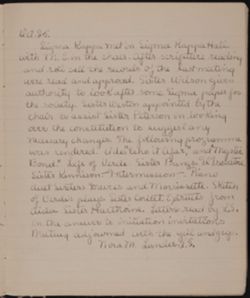 Oct. 25.
Sigma Kappa met in Sigma Kappa Hall
with V.S. in the chair. After scripture reading
and roll call the records of the last meeting
were read and approved. Sister Wilson given
authority to look after some Sigma paper for
the society. Sister Weston appointed by the
chair to assist Sister Peterson in looking
over the constitution to suggest any
necessary changes. The following programme
was rendered.
Bond" Life of Verdi Sister
Sister Kennison—Intermission—Piano
duet Sisters and Morissette. Sketch
of Verdi's plays Sister Extracts from
Sister Hawthorne. Letters read by V.S.
in the answer to initiation invitations.
Meeting adjourned with the yell and sig.
Nora M. Lander, V.S.